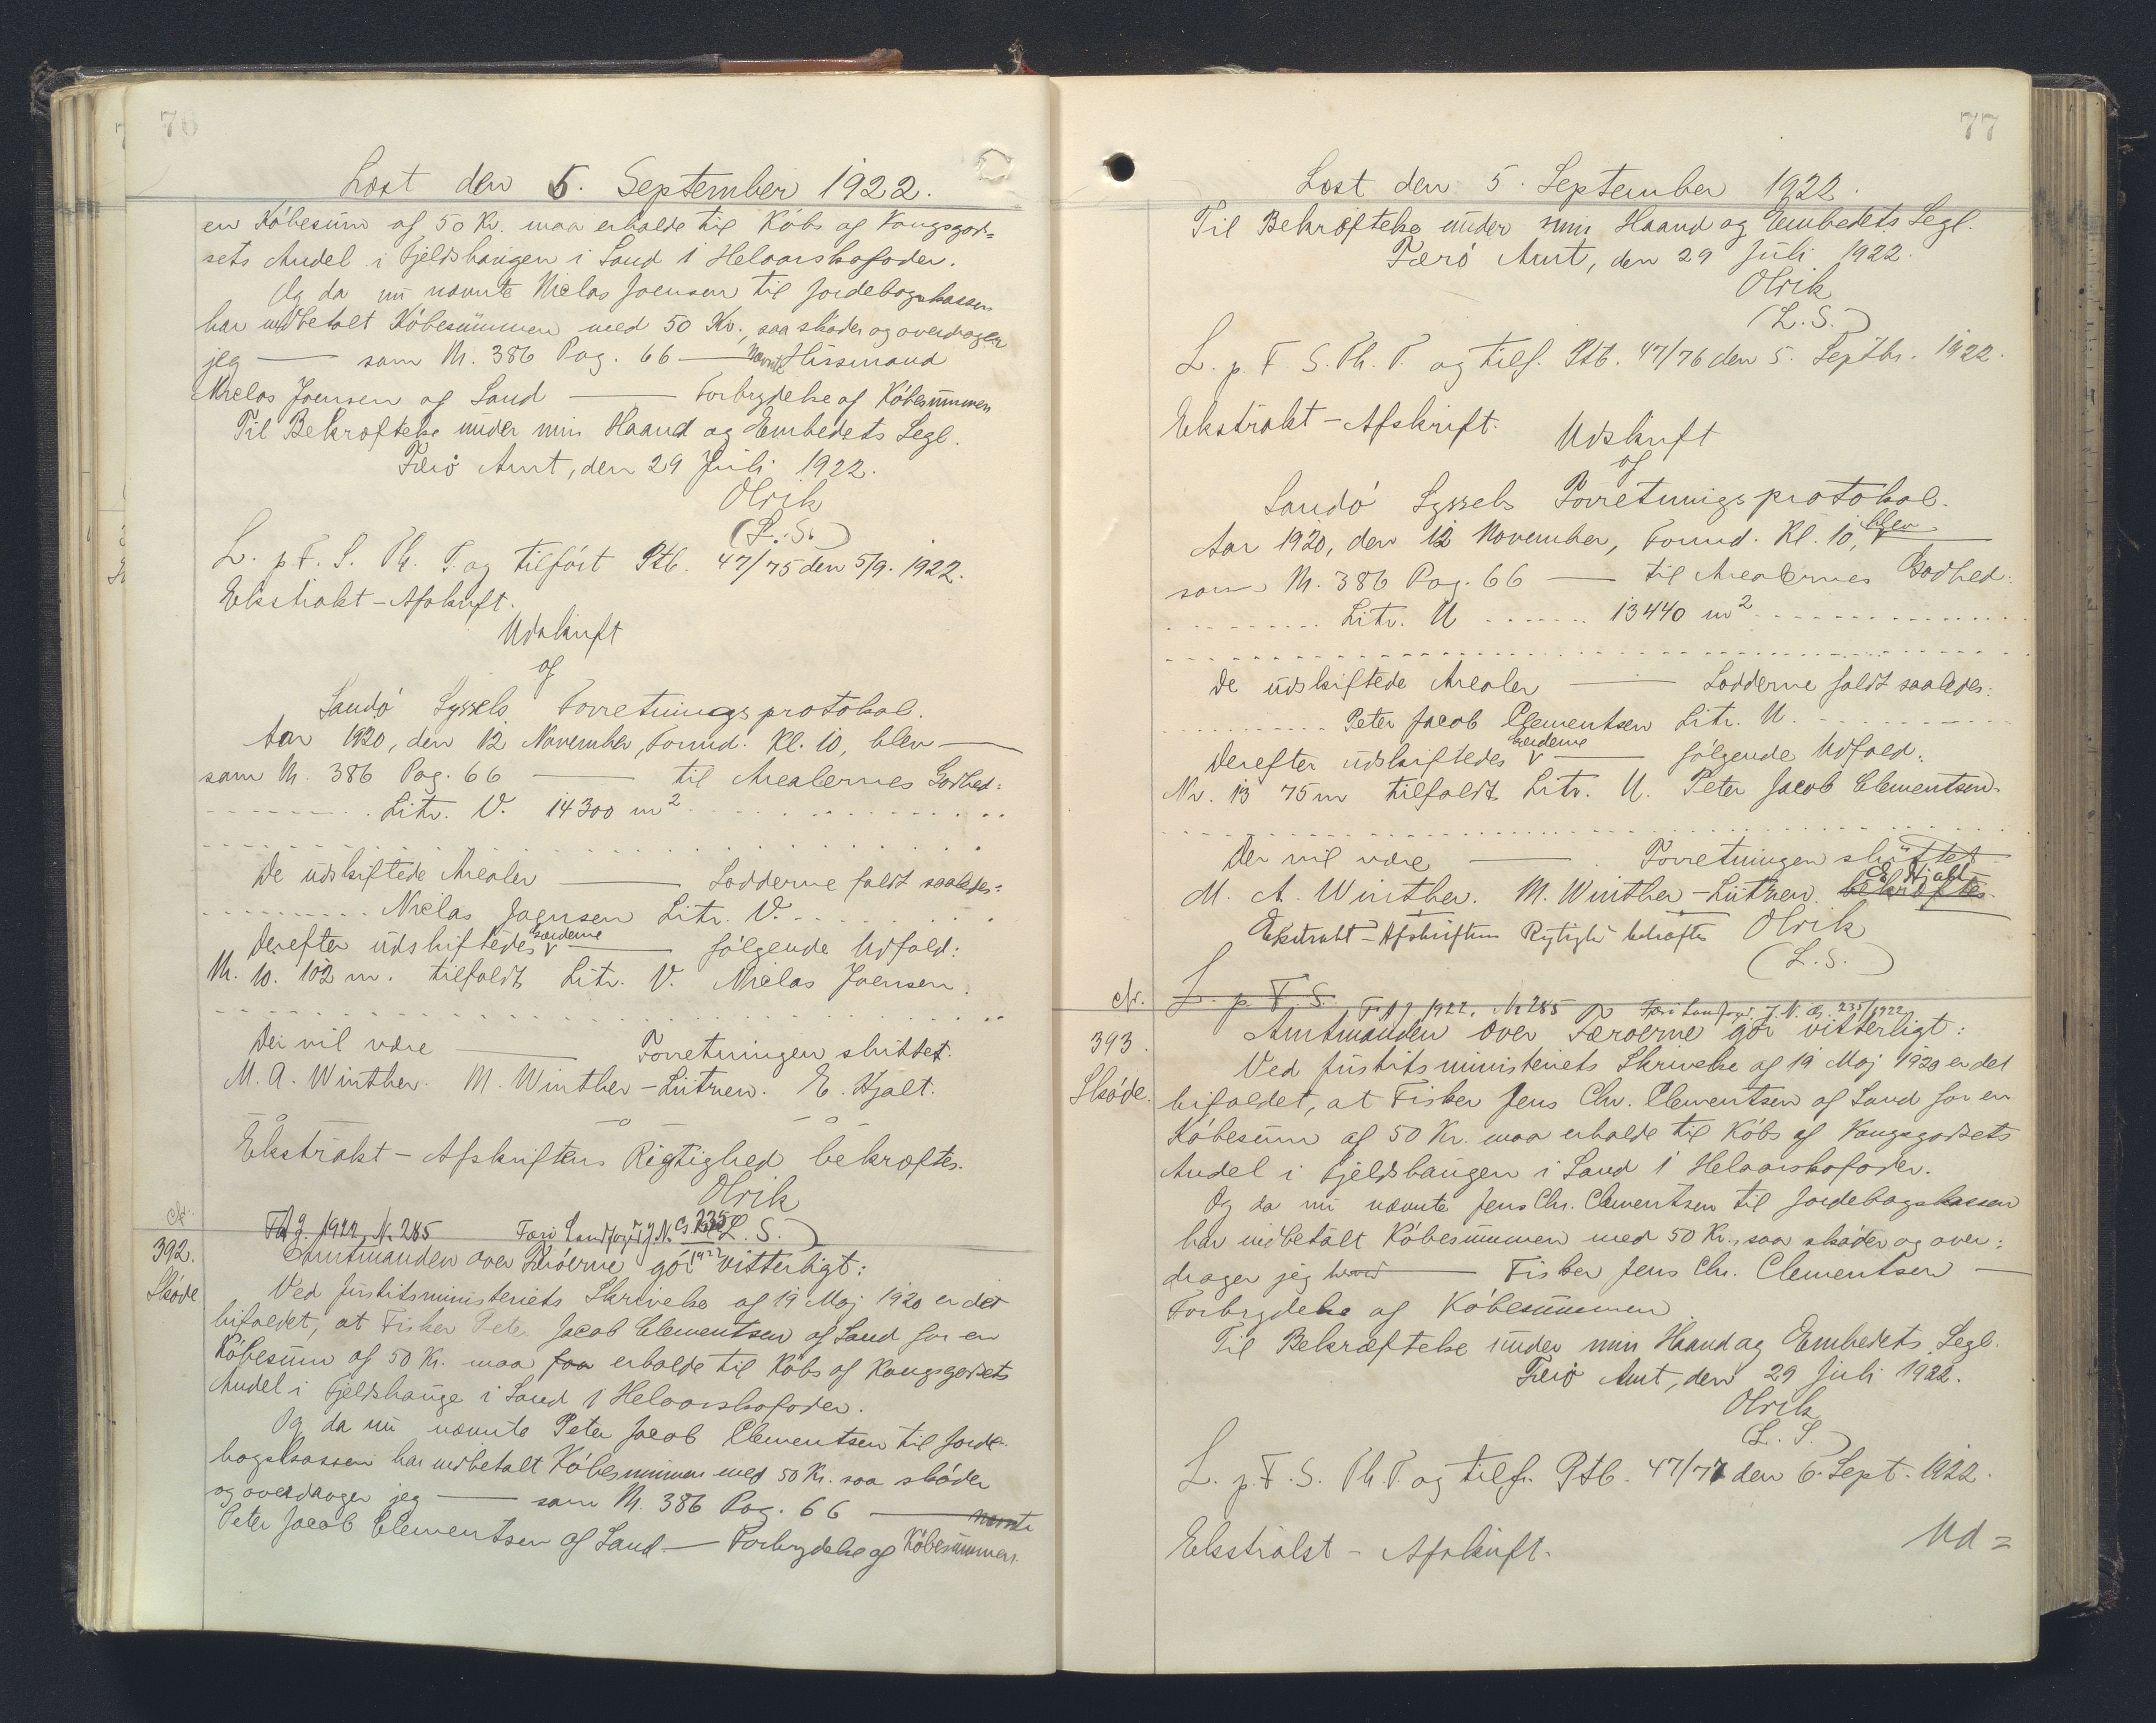 76
Læst den 5. September 1922.
en Köbesum af 50 Kr. maa erholde til Köbs af Kongsgod=
sets Andel i Fjeldshaugen i Sand 1 Helaarskofoder.
Og da nu nævnte Niclas Joensen til Jordebogskassen
har indbetalt Köbesummen med 50 Kr., saa sköder og overdrager
jeg — som Nr. 386 Pag. 66 — nævnte Husmand
Niclas Joensen af Sand — Forbrydelse af Köbesummen
Til Bekræftelse under min Haand og Embedets Segl.
Færö Amt, den 29 Juli 1922.
Olrik
(L.S.)
L. p. F. S. Th. T. og tilfört Ptb. 47/75 den 5/9. 1922.
Ekstrakt-Afskrift.
Udskrift
af
Sandö Syssels Forretningsprotokol.
Aar 1920, den 12 November, Formd. Kl. 10, blev —
som Nr. 386 Pag. 66 — til Arealernes Godhed:
Litr. V. 14300 m²
De udskiftede Arealer — Lodderne faldt saaledes:
Niclas Joensen Litr. V.
Derefter udskiftedes Gærderne — fölgende Udfald:
Nr. 10. 102 m. tilfaldt Litr. V. Niclas Joensen.
Der vil være — Forretningen sluttet.
M. A. Winther. M. Winther-Lützen. E. Hjalt.
Ekstrakt-Afskriftens Rigtighed bekræftes.
Olrik
(L. S.)
Nr. F. A. J. 1922, Nr. 285 Færö Landfoged J. N. G. 235/1922
392. Amtmanden over Færöerne gör vitterligt:
Sköde Ved Justitsministeriets Skrivelse af 19 Maj 1920 er det
bifaldet, at Fisker Peter Jacob Clementsen af Sand for en
Köbesum af 50 Kr. maa faa erholde til Köbs af Kongsgodsets
Andel i Fjeldshauge i Sand 1 Helaarskofoder.
Og da nu nævnte Peter Jacob Clementsen til Jorde-
bogskassen har indbetalt Köbesummen med 50 Kr. saa sköder
og overdrager jeg — som Nr. 386 Pag. 66 — nævnte
Peter Jacob Clementsen af Sand — Forbrydelse af Köbesummen.
77
Læst den 5. September 1922.
Til Bekræftelse under min Haand og Embedets Segl.
Færö Amt, den 29 Juli 1922.
Olrik
(L. S.)
L. p. F. S. Th. T. og tilf. Ptb. 47/76 den 5. Septbr. 1922.
Ekstrakt-Afskrift.
Udskrift
af
Sandö Syssels Forretningsprotokol.
Aar 1920, den 12 November, Formd. Kl. 10, blev —
som Nr. 386 Pag. 66 — til Arealernes Godhed:
Litr. U 13440 m²
De udskiftede Arealer — Lodderne faldt saaledes:
Peter Jacob Clementsen Litr. U.
Derefter udskiftedes Gærderne — fölgende Udfald:
Nr. 13 75 m tilfaldt Litr. U. Peter Jacob Clementsen.
Der vil være — Forretningen sluttet
M. A. Winther. M. Winther-Lützen. bekræftes E. Hjalt
Ekstrakt-Afskriftens Rigtighed bekræftes Olrik
(L. S.)
Nr. L. p. F. S. F. A. J. 1922, Nr 285 Færö Landfoged J. N. G. 235/1922
393. Amtmanden over Færöerne gör vitterligt:
Sköde. Ved Justitsministeriets Skrivelse af 19 Maj 1920 er det
bifaldet, at Fisker Jens Chr. Clementsen af Sand for en
Köbesum af 50 Kr. maa erholde til Köbs af Kongsgodsets
Andel i Fjeldshaugen i Sand 1 Helaarskofoder.
Og da nu nævnte Jens Chr. Clementsen til Jordebogskassen
har indbetalt Köbesummen med 50 Kr., saa sköder og over=
drager jeg — Fisker Jens Chr. Clementsen —
Forbrydelse af Köbesummen
Til Bekræftelse under min Haand og Embedets Segl.
Færö Amt, den 29 Juli 1922.
Olrik
(L. S.)
L. p. F. S. Th. T. og tilf. Ptb. 47/77 den 6. Sept. 1922.
Ekstrakt-Afskrift.
Ud=